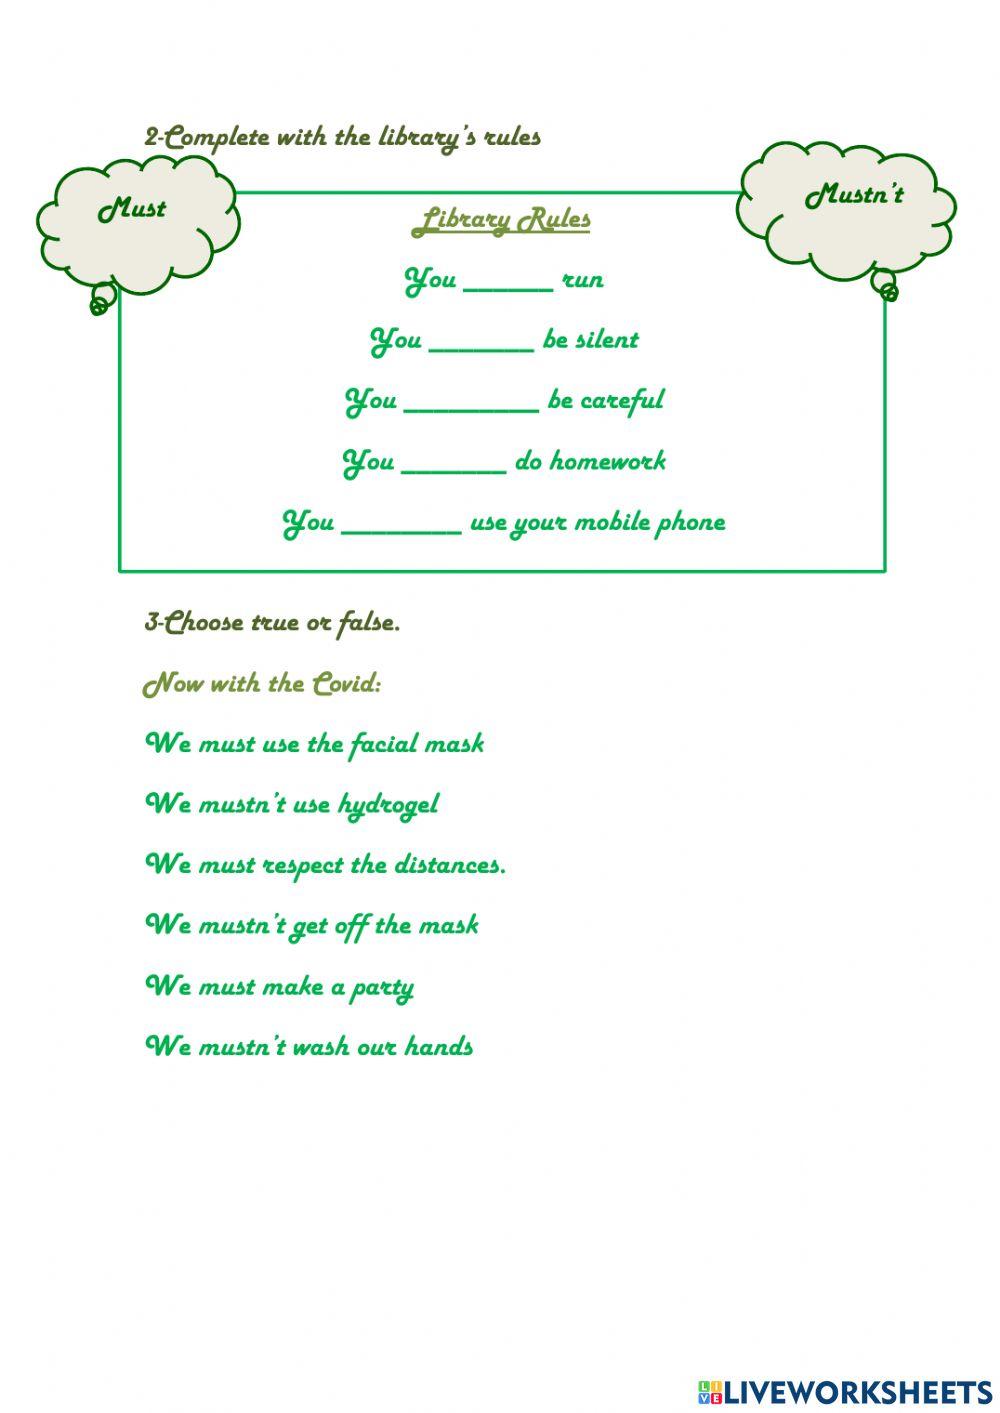 2-Complete with the library's rules
Must
Mustn't
Library Rules
You ______ run
You _______ be silent
You _________ be careful
You _______ do homework
You ________ use your mobile phone
3-Choose true or false.
Now with the Covid:
We must use the facial mask
We mustn't use hydrogel
We must respect the distances.
We mustn't get off the mask
We must make a party
We mustn't wash our hands
LIVE LIVEWORKSHEETS